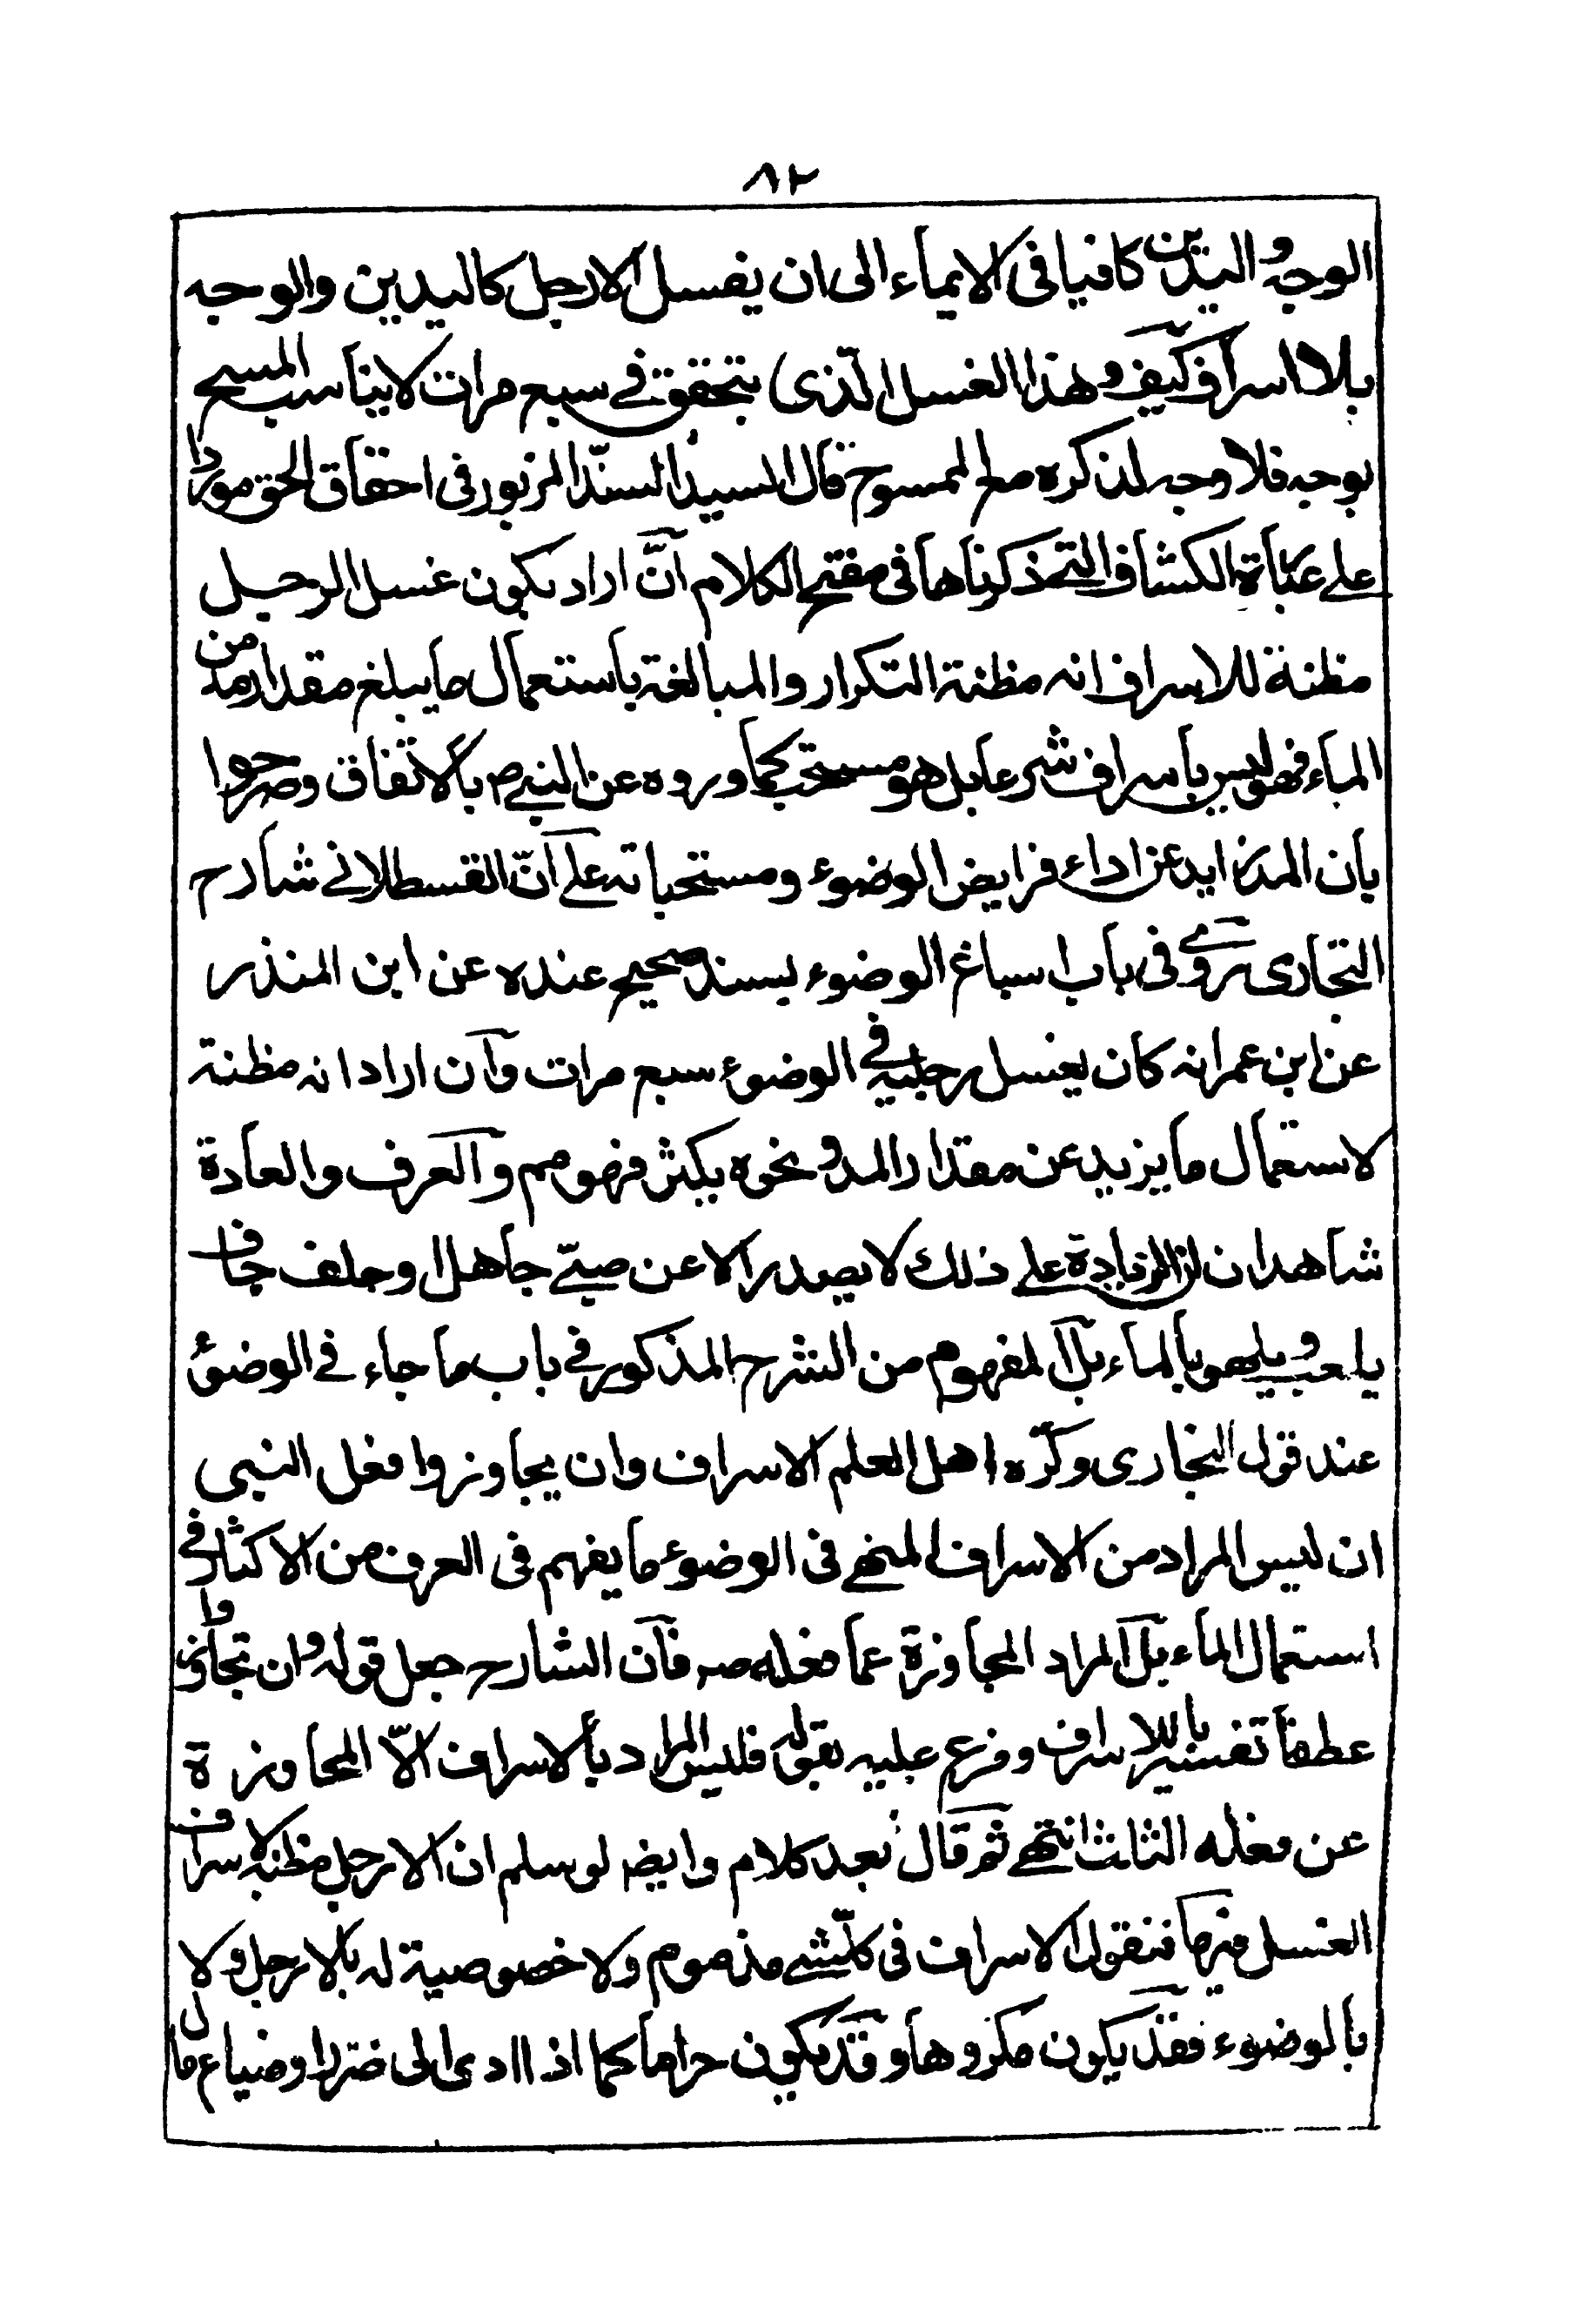 ٨٢
الوجه واليدين كافيا فى الايماء الى ان يغسل الارجل كاليدين والوجه
بلا اسراف كيف وهذا الغسل الّذى يتحقق في سبع مرات لا يناسب المسح
بوجه فلا وجه لذكره مع الممسوح قال السيد السند المزبور فى احقاق الحق موردا
على عبارة الكشاف التي ذكرناها فى مفتح الكلام انّ اراد بكون غسل الرجل
مظنة للاسراف انه مظنة التكرار والمبالغة باستعمال ما يبلغ مقدار مد من
الماء فهو ليس باسراف شرعا بل هو مستحب كما رووه عن النبي ص بالاتفاق وصرحوا
بان المد زايد عن اداء فرايض الوضوء ومستحباته على انّ القسطلاني شارح
البخارى روى فى باب اسباغ الوضوء بسند صحيح عنده عن ابن المنذر
عن ابن عمر انه كان يغسل رجليه في الوضوء سبع مرات وان اراد انه مظنة
لاستعمال ما يزيد عن مقدار المد ونحوه بكثير فهو مم والعرف والعادة
شاهدان ان الزيادة على ذلك لا يصدر الا عن صبيّ جاهل او جلف جاف
يلعب ويلهو بالماء بل المفهوم من الشرح المذكور في باب ما جاء في الوضوء
عند قول البخارى وكره اهل العلم الاسراف وان يجاوزوا فعل النبى
ان ليس المراد من الاسراف المنهي فى الوضوء ما يفهم فى العرف من الاكثار في
استعمال الماء بل المراد المجاوزة عما فعله ص فان الشارح جعل قوله وان تجاوزوا
عطفا تفسيريا للاسراف وفرع عليه بقوله فليس المراد بالاسراف الّا المجاوزة
عن فعله الثلث انتهى ثم قال بعد كلام وايض لو سلم ان الارجل مظنة لاسراف
الغسل فيها فنقول الاسراف فى كلّ شي مذموم ولا خصوصية له بالارجل ولا
بالوضوء فقد يكون مكروها وقد يكون حراما كما اذا ادى الى ضرر او ضياع مال